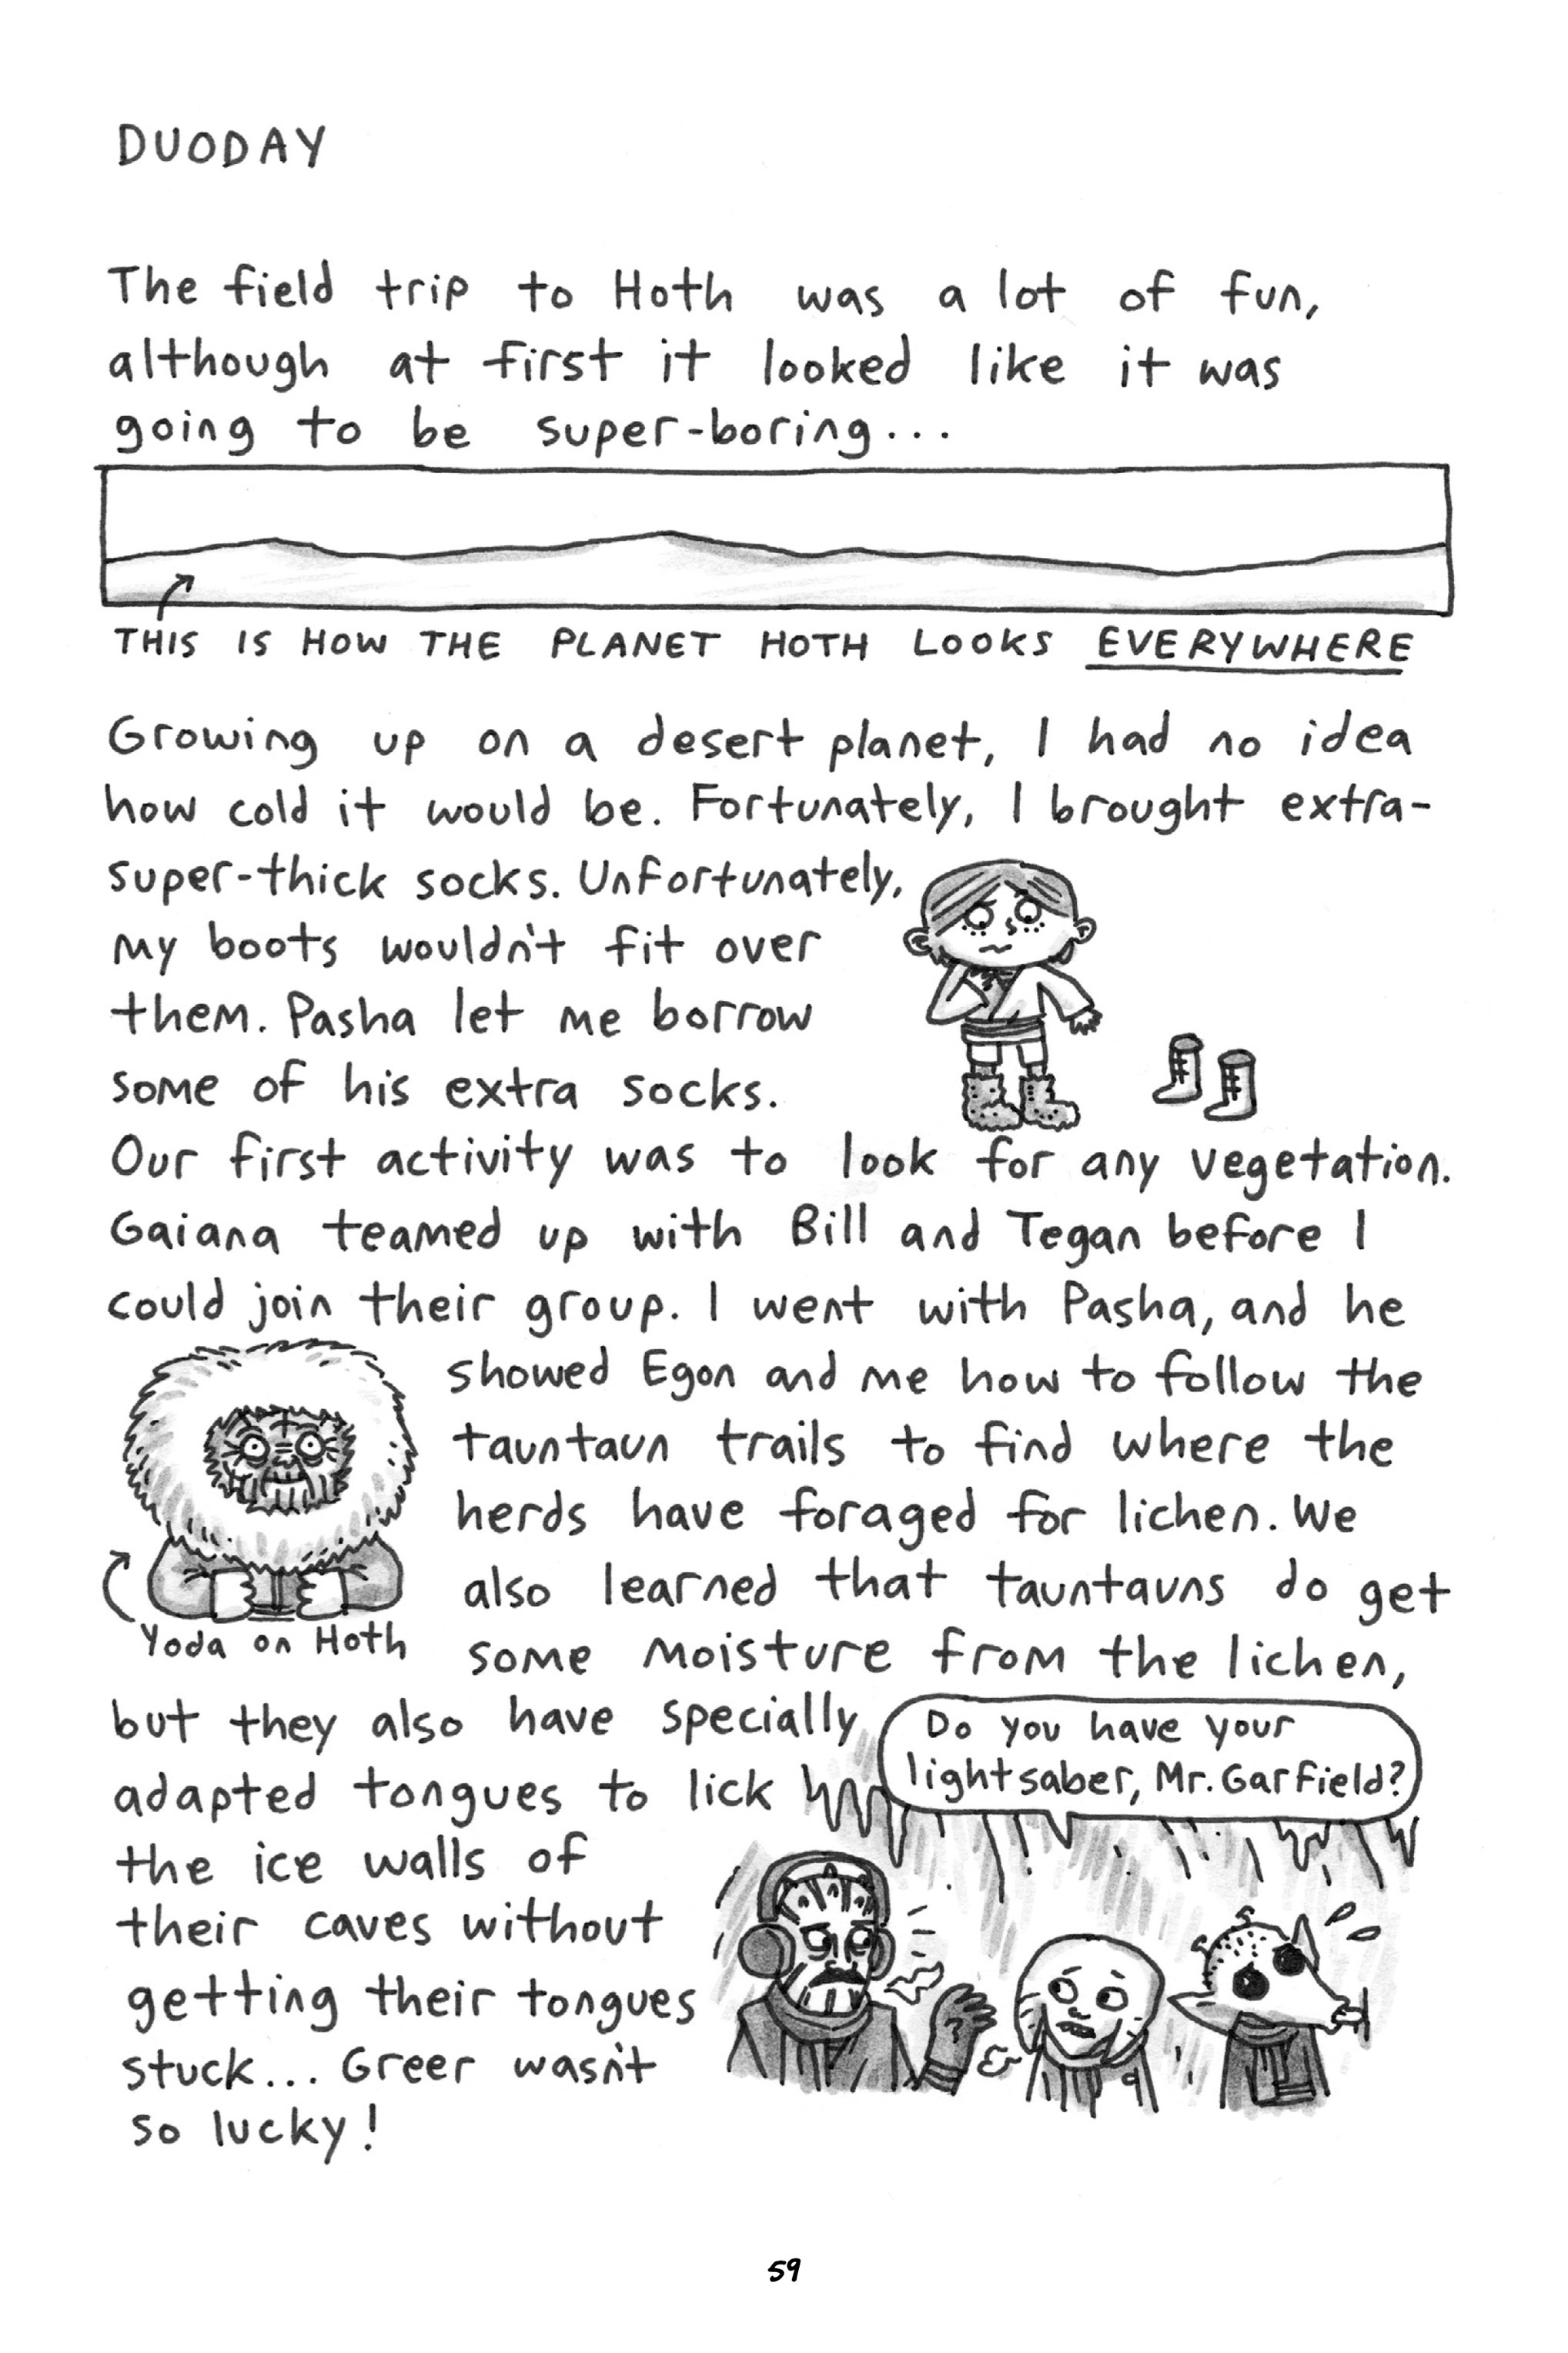 DUODAY
The field trip to Hoth was a lot of fun,
although at first it looked like it was
going to be super-boring...
THIS IS HOW THE PLANET HOTH LOOKS EVERYWHERE
Growing up on a desert planet, I had no idea
how cold it would be. Fortunately, I brought extra-
super-thick socks. Unfortunately,
my boots wouldn't fit over
them. Pasha let me borrow
some of his extra socks.
Our first activity was to look for any vegetation.
Gaiana teamed up with Bill and Tegan before I
could join their group. I went with Pasha, and he
showed Egon and me how to follow the
tauntaun trails to find where the
herds have foraged for lichen. We
also learned that tauntauns do get
some moisture from the lichen,
Yoda on Hoth
but they also have specially
adapted tongues to lick
the ice walls of
their caves without
getting their tongues
stuck... Greer wasn't
so lucky!
Do you have your
lightsaber, Mr. Garfield?
59